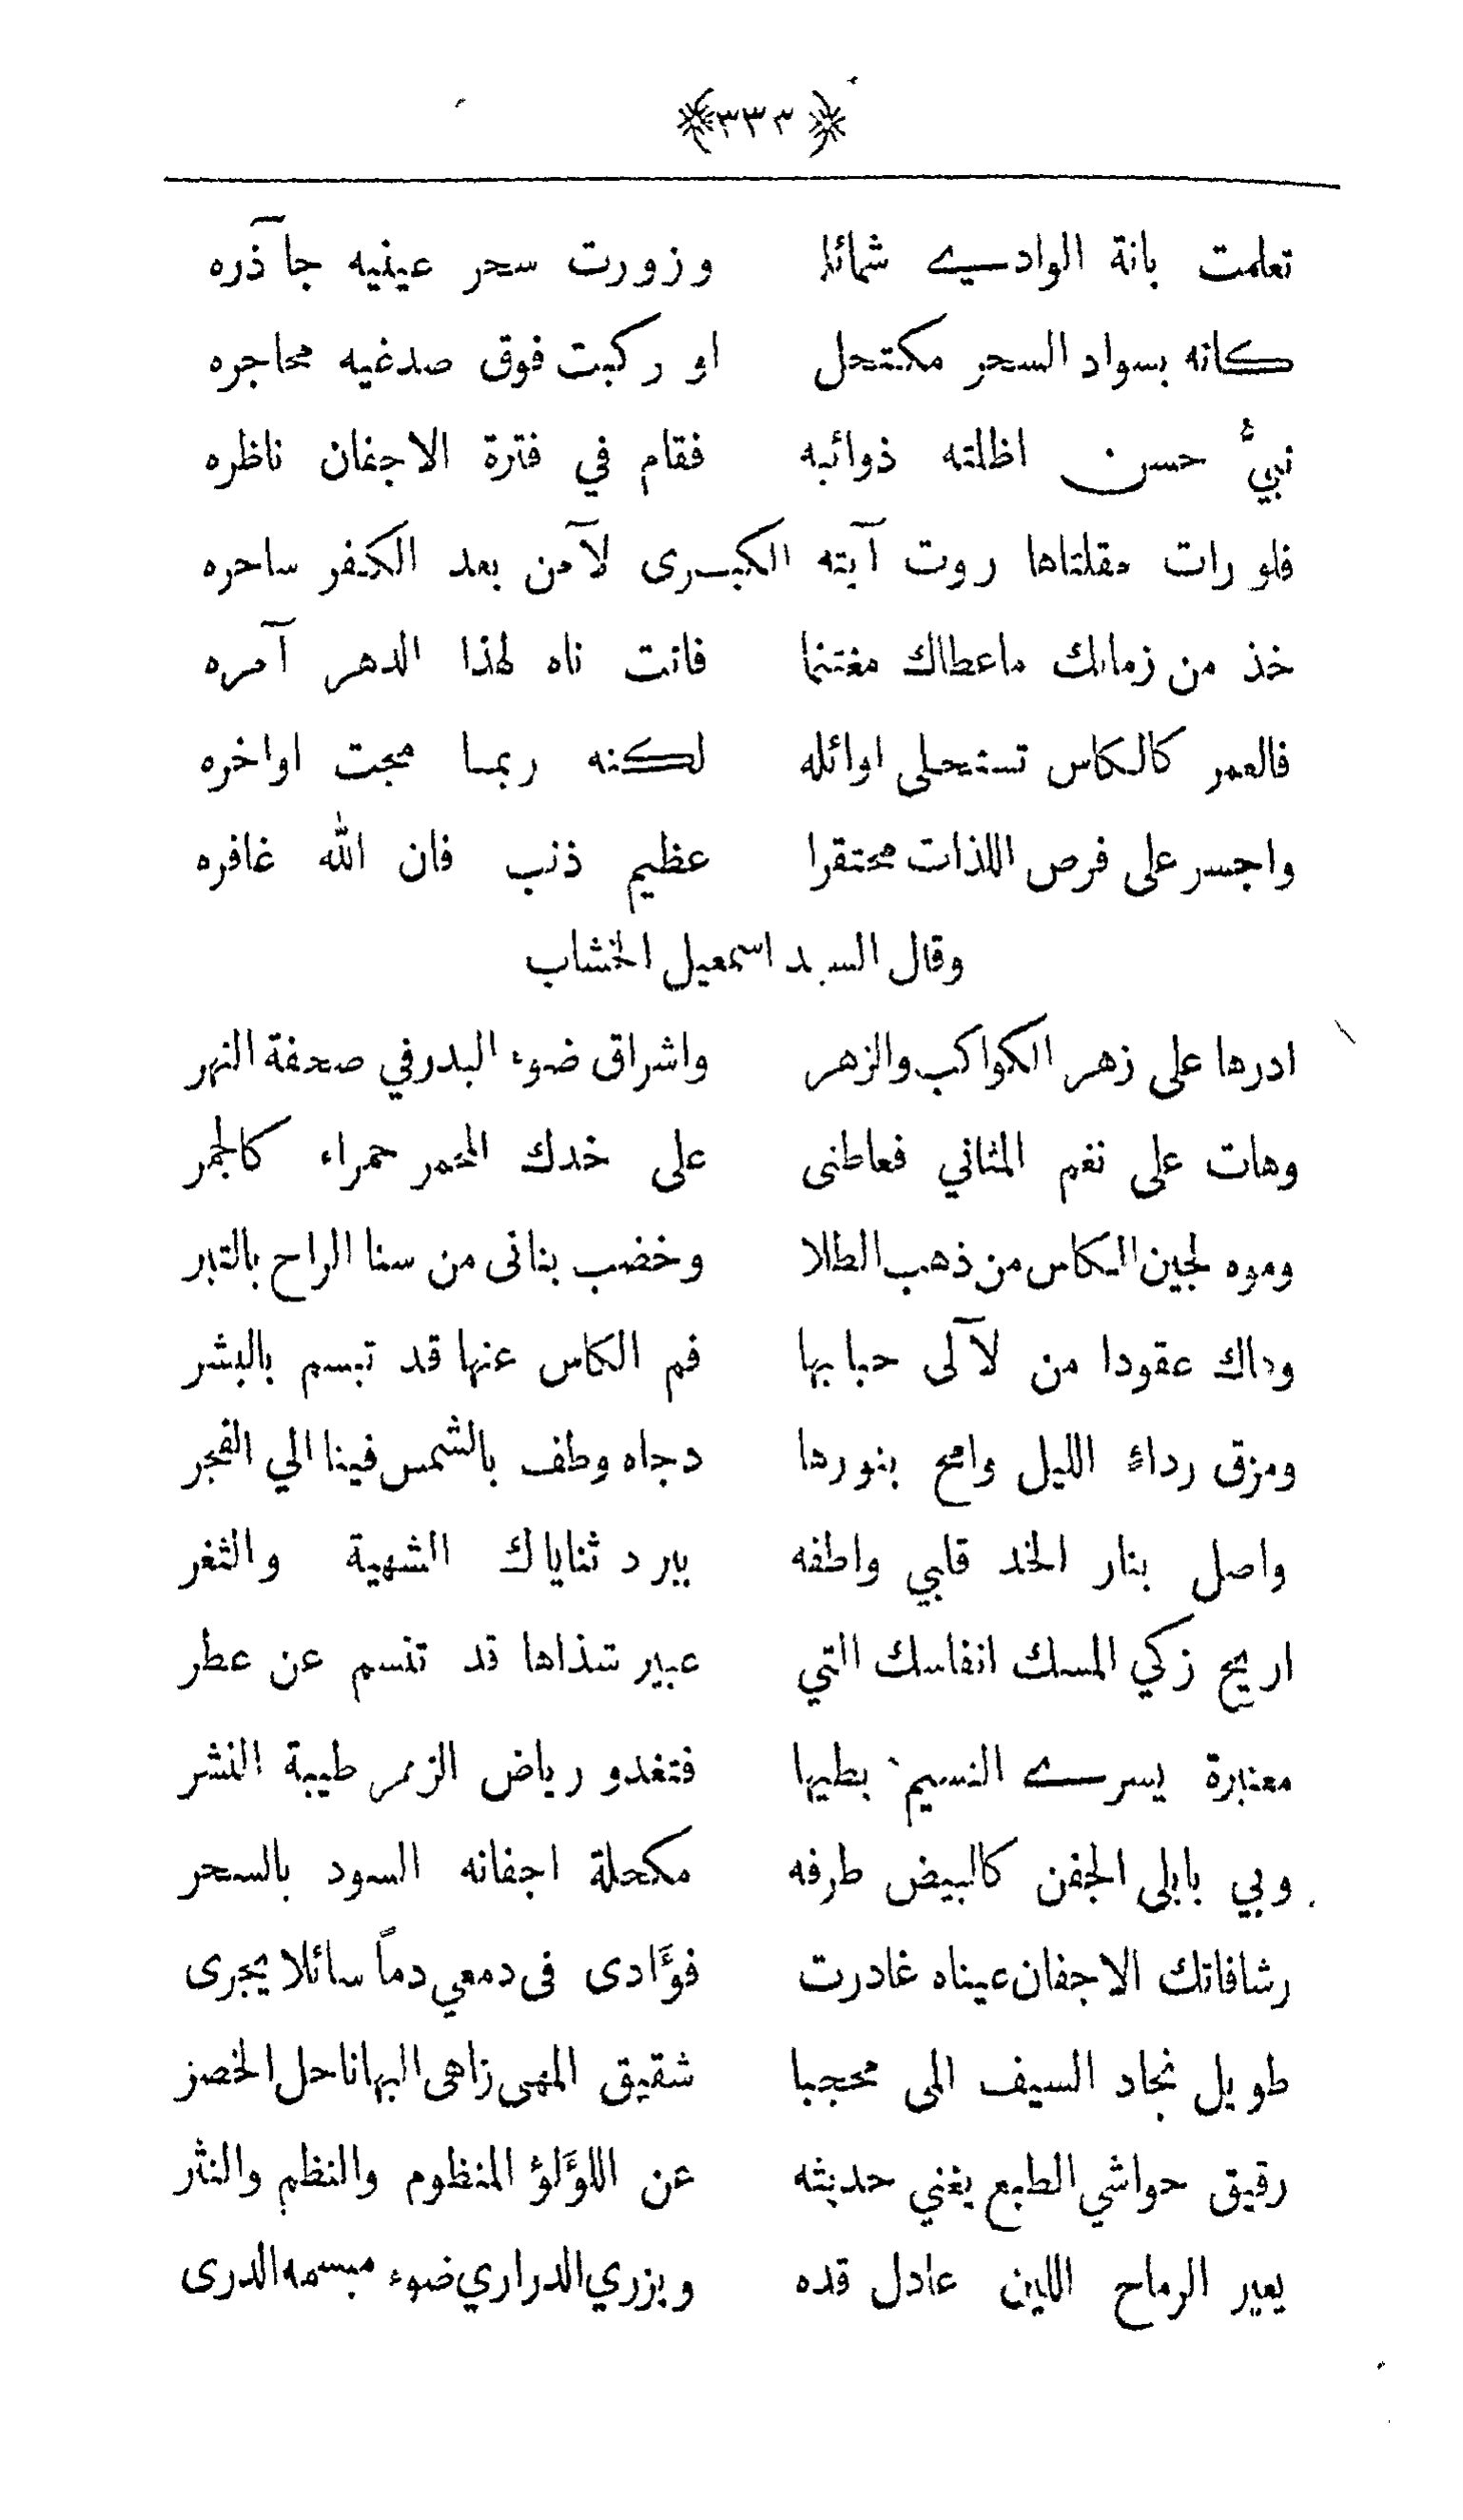 ﴿٣٣٣﴾
تعلمت بانة الوادي شمائلا وزورت سحر عينيه جآذره
كانه بسواد السحر مكتحل او ركبت فوق صدغيه محاجره
نبيُّ حسن اظلته ذوائبه فقام في فترة الاجفان ناظره
فلو رات مقلتاها روت آيته الكبرى لآمن بعد الكفر ساحره
خذ من زمانك ماعطاك مغتنما فانت ناه لهذا الدهر آمره
فالعمر كالكاس تستحلى اوائله لكنه ربما مجت اواخره
واجسر على فرص اللذات محتقرا عظيم ذنب فان الله غافره
وقال السيد اسمعيل الخشاب
ادرها على زهر الكواكب والزهر واشراق ضوء البدر في صحفة النهر
وهات على نغم المثاني فعاطنى على خدك المحمر حمراء كالجمر
وموه لجين الكاس من ذهب الطلا وخضب بنانى من سنا الراح بالتبر
وهاك عقودا من لآلى حبابها فم الكاس عنها قد تبسم بالبشر
ومزق رداءَ الليل وامح بنورها دجاه وطف بالشمس فينا الي الفجر
واصل بنار الخد قلبي واطفه ببرد ثناياك الشهية والثغر
اريج زكي المسك انفاسك التي عبير شذاها قد تنسم عن عطر
معنبرة يسرى النسيم بطيها فتغدو رياض الزهر طيبة النشر
وبي بابلى الجفن كالبيض طرفه مكحلة اجفانه السود بالسحر
رشافاتك الاجفان عيناه غادرت فؤادى فى دمعي دماً سائلا يجرى
طويل نجاد السيف المى محجبا شقيق المهى زاهى البها ناحل الخصر
رقيق حواشي الطبع يغني حديثه عن اللؤلؤ المنظوم والنظم والنثر
يعير الرماح اللين عادل قده ويزري الدراري ضوء مبسمه الدرى